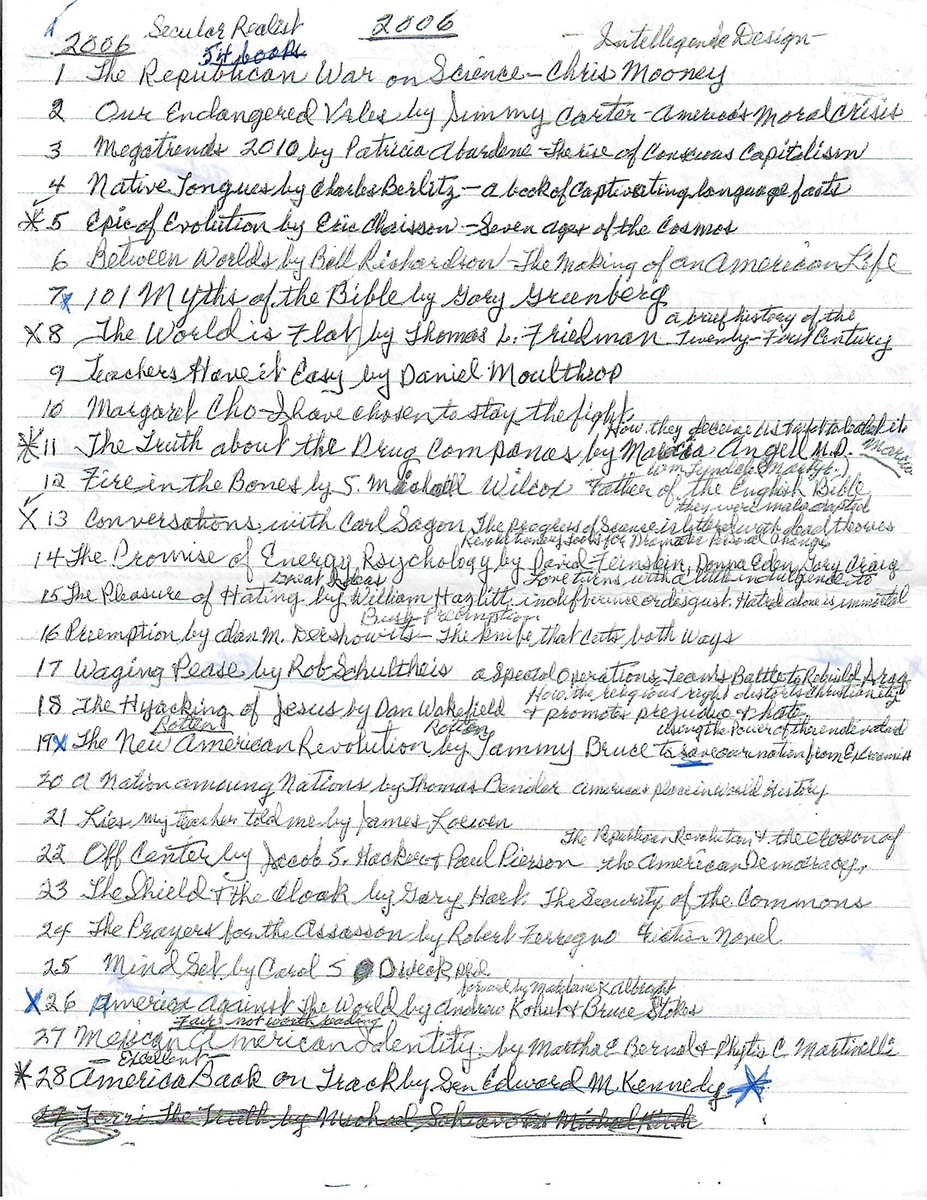 2006 Secular Realist 2006 - Intelligence Design -
54 books
1 The Republican War on Science - Chris Mooney
2 Our Endangered Vales by Jimmy Carter - America's Moral Crisis
3 Megatrends 2010 by Patricia Aburdene - The rise of Conscious Capitalism
4 Native Tongues by Charles Berlitz - a book of Captivating language facts
5 Epic of Evolution by Eric Chaisson - Seven ages of the Cosmos
6 Between Worlds by Bill Richardson - The Making of an American Life
7 101 Myths of the Bible by Gary Greenberg
a brief history of the
X 8 The World is Flat by Thomas L. Friedman Twenty-First Century
9 Teachers Have it Easy by Daniel Moulthrop
10 Margaret Cho - I have chosen to stay the fight
How they deceive us + what to do about it
11 The Truth about the Drug Companas by Marcia Angell M.D. Marcia
Wm Tyndale (Martyr)
12 Fire in the Bones by S. Michael Wilcox Father of the English Bible
they were male dopted
X 13 Conversations with Carl Sagon The progress of Science is littered with dead theories
Revolutionary Tools for Dramatic Personal Change
14 The Promise of Energy Psychology by David Feinstein, Donna Eden, Gary Craig
Great Ideas Love turns, with a little indulgence to
15 The Pleasure of Hating by William Hazlitt, indifference or desgust. Hatred alone is immortal
Bush Preemption
16 Premption by Alan M. Dershowits - The knife that cuts both ways
17 Waging Pease by Rob Schultheis a Special Operations Team's Battle to Rebuild Iraq
How the religious right distorts christianity
18 The Hijacking of Jesus by Dan Wakefield + promotes prejudice + hate
Rotten Rotten using the Power of the individual
19 X The New American Revolution by Tammy Bruce to save our nation from Extremists
20 A Nation amoung Nations by Thomas Bender America's place in World History
21 Lies my teacher told me by James Loewen
The Republican Revolution + the erosion of
22 Off Center by Jacob S. Hacker + Paul Pierson the American Democracy.
23 The Shield + the Cloak by Gary Hart. The Security of the Commons
24 The Prayers for the Assasson by Robert Ferregno Fiction Novel
25 Mind Set by Carol S Dweck phd
forward by Madelaine K Albright
X 26 America Against The World by Andrew Kohut + Bruce Stokes
Fair not worth reading
27 Mexican American Identity by Martha E Bernal + Phylis C. Martinelli
- Excellent -
28 America Back on Track by Sen Edward M. Kennedy
Terri The Truth by Michael Schiavo